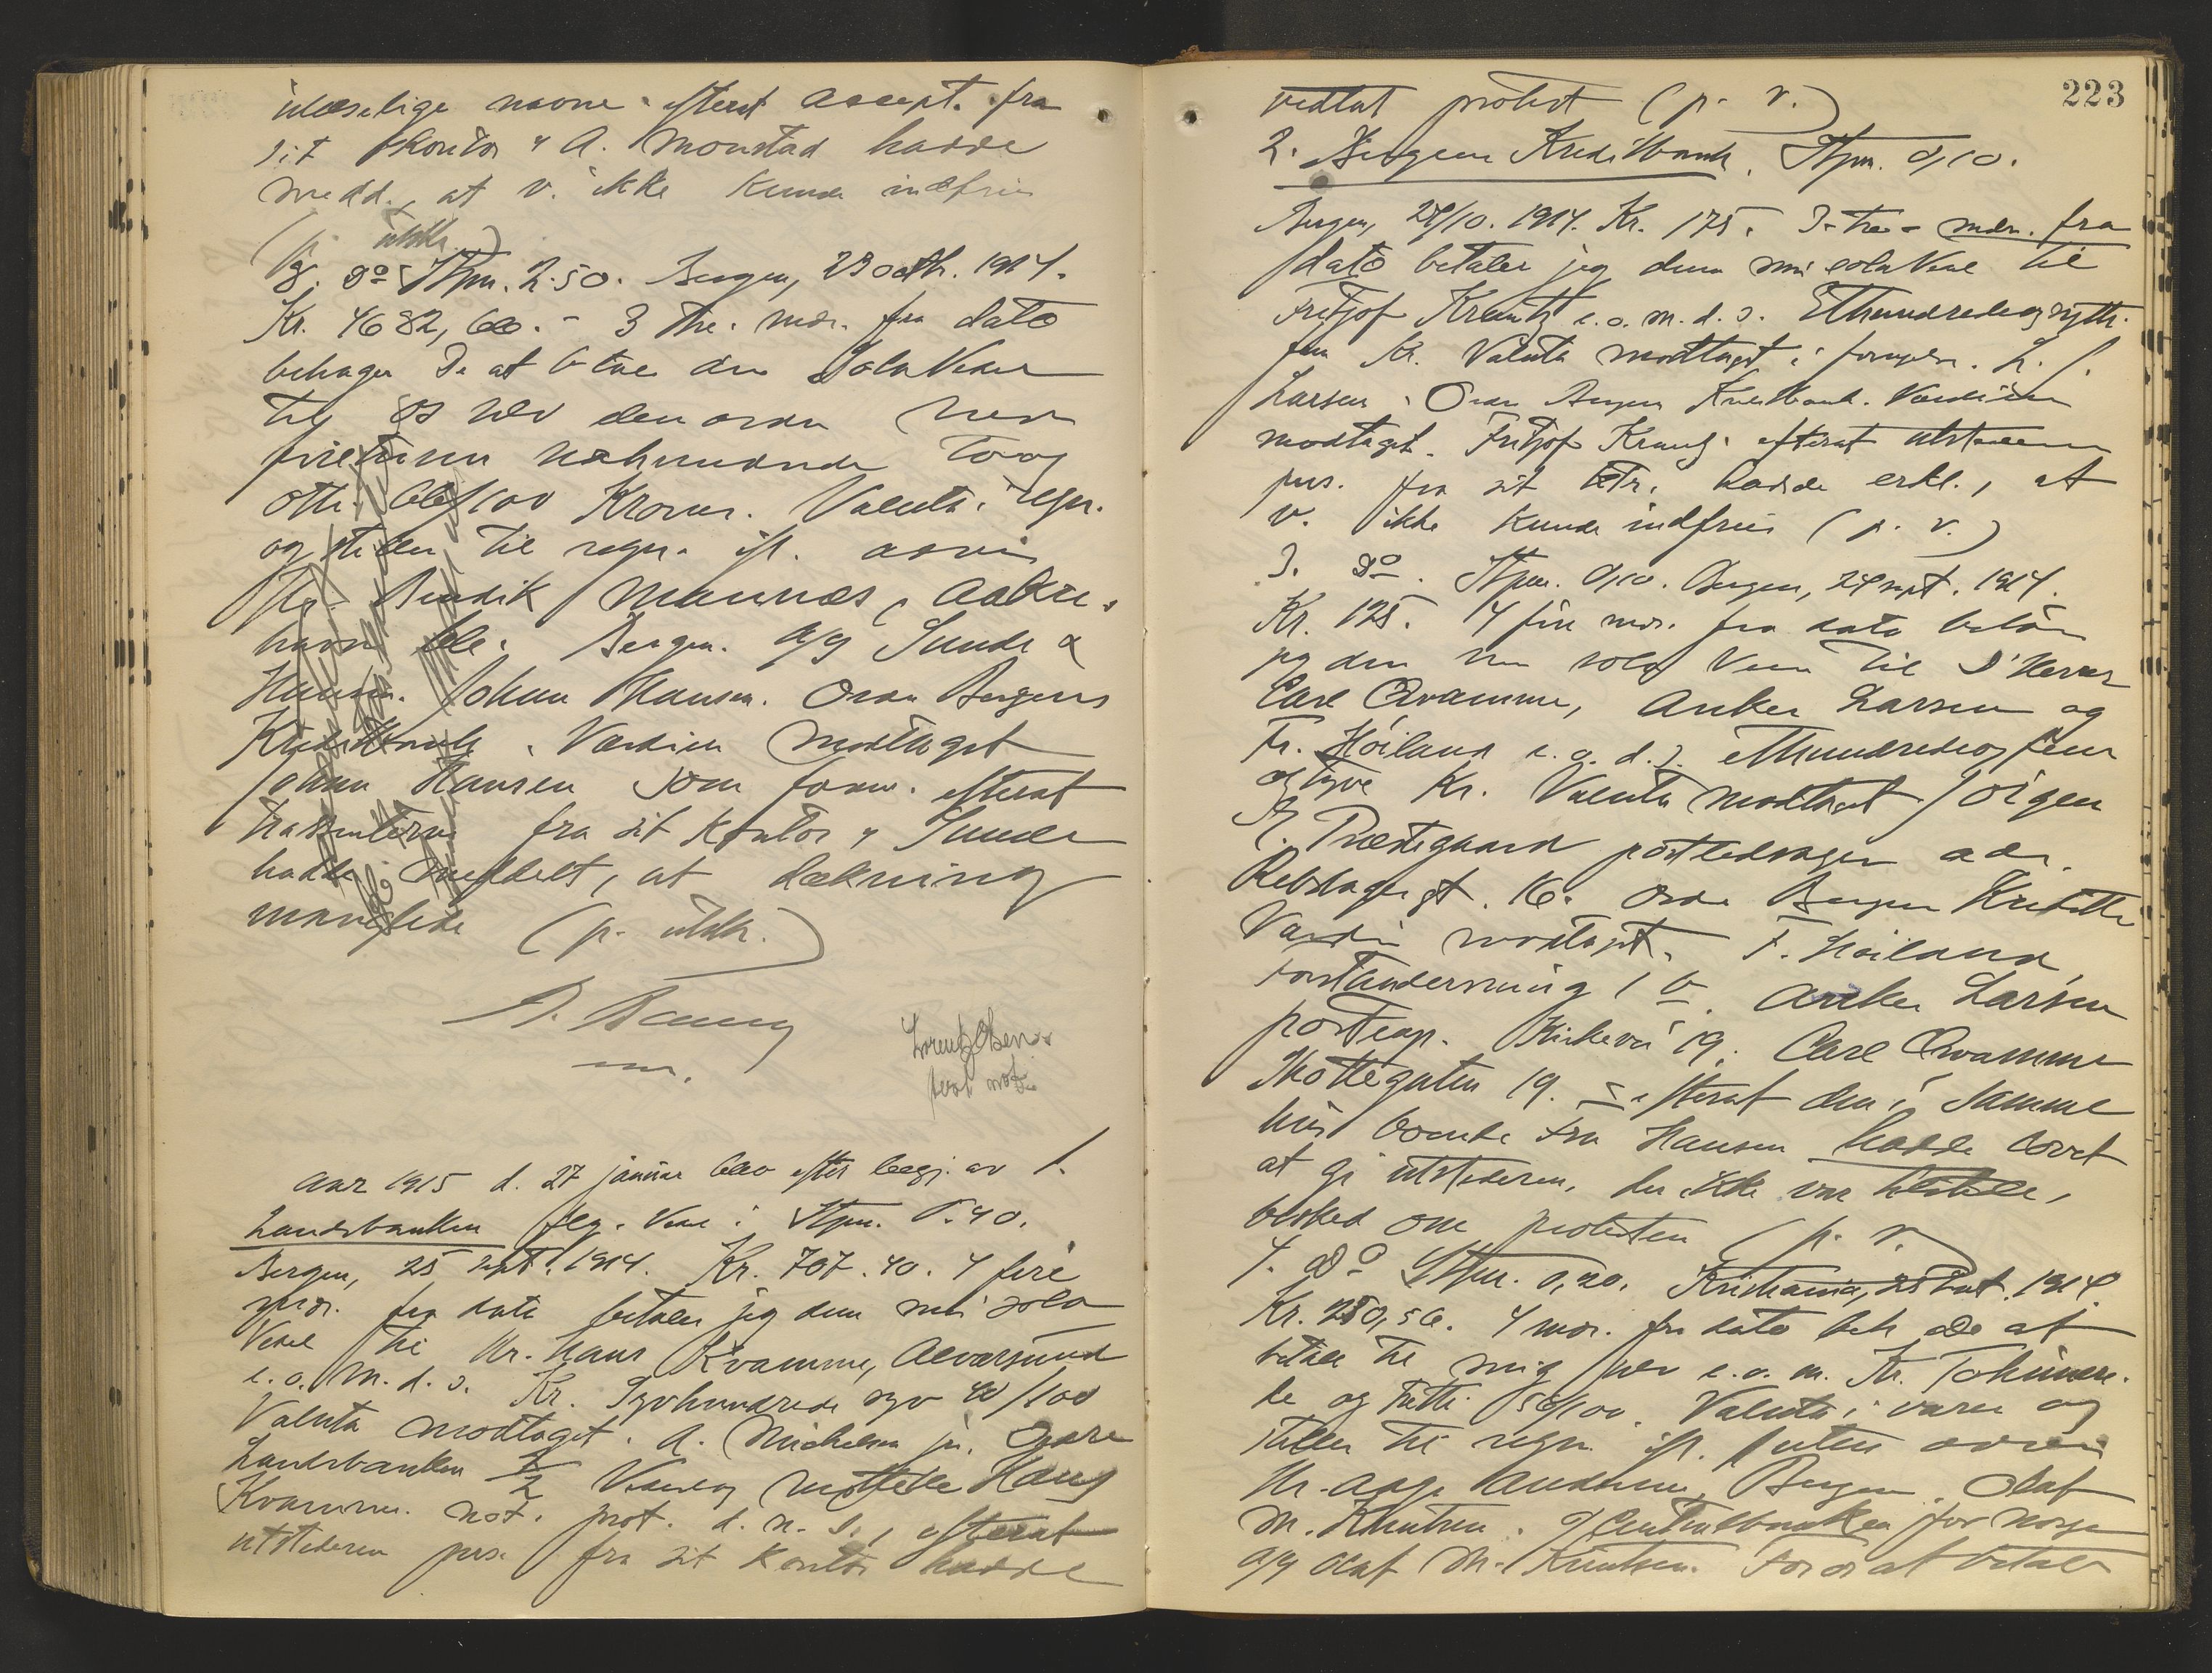 ulæselige navne. efterat accept. fra
sit kontor v A. Monstad hadde
medd., at v. ikke kunde indfries
(p. utstk.)
8. Do Stpm. 2.50. Bergen, 23 octbr. 1914.
Kr. 4682,60.- 3 tre. mdr. fra dato
behager De at betale denne Sola Veksel
til os selv eller ordre med
firetusen sekshundrede to og
otti 60/100 Kroner. Valuta i regn.
og stilles til regn. ifl. avis
Hr. Bendik Mannæs, Aakre-
havn bet. Bergen. A/S Sunde &
Hansen. Johan Hansen. Ordre Bergens
Kreditbank. Værdien modtaget
Johan Hansen som form. efterat
trassenterne fra sit kontor v Sunde
hadde meddelt, at dækning
manglede (p. utstk.)
Lorentz Olsen
Aar 1915 d. 27 januar blev efter begj. av 1.
Landsbanken flg. Veksel: Stpm. 0.40.
Bergen, 25 sept. 1914. Kr. 707.40. 4 fire
mdr. fra dato betaler jeg denne min sola
Veksel til Hr. Hans Kvamme, Alversund
e.o. m. d. s. Kr. Syvhundrede syv 40/100
Valuta modtaget. A. Michelsen jr. Ordre
Landsbanken Hans
Kvamme. not. prot. d. n. s., efterat
utstederen pers. fra sit kontor hadde
223
vedtat protest (p. v.)
2. Bergens Kreditbank. Stpm. 0,10.
Bergen, 24/10. 1914. Kr. 175. 3-tre- mdr. fra
dato betaler jeg denne min sola Veksel til
Fritjof Krantz e.o. m. d. s. Ethundredeogsytti-
fem Kr. Valuta modtaget i
Larsen. Ordre Bergens Kreditbank. Værdien
modtaget. Fritjof Krantz. efterat utstederen
pers. fra sit hadde erkl., at
v. ikke kunde indfries (p. v.)
3. Do. Stpm. 0,10. Bergen, 24 sept. 1914.
Kr. 125. 4 fire mdr. fra dato betaler
jeg denne min sola Veksel til D'Herrer
Carl Qvamme, Anker Larsen og
Fr. Höiland e. o. d. s. Ethundredeogfem
og tyve Kr. Valuta modtaget Jörgen
Prestegaard postledsager adr.
Rebslagergt. 16. Ordre Bergens Kreditbk
Værdi modtaget. F. Höiland,
Anker Larsen
postexp. Kirkevei 19. Carl Qvamme
Skottegaten 19. efterat den i samme
hus boende Fru Hansen hadde lovet
at gi utstederen, der ikke var tilstede,
besked om protesten (p. v.)
4. Do Stpm. 0,20. Kristiania, 25 sept. 1914.
Kr. 250,56. 4 mdr. fra dato beh. De at
betale til mig selv e.o. m. Kr. Tohundre-
de og femti 56/100. Valuta i varer og
stilles til regn. ifl. uten avis
Hr. Aage Bergen. Olaf
M. Knutsen. Centralbanken for Norge
A/S Olaf M. Knutsen. For os at betale